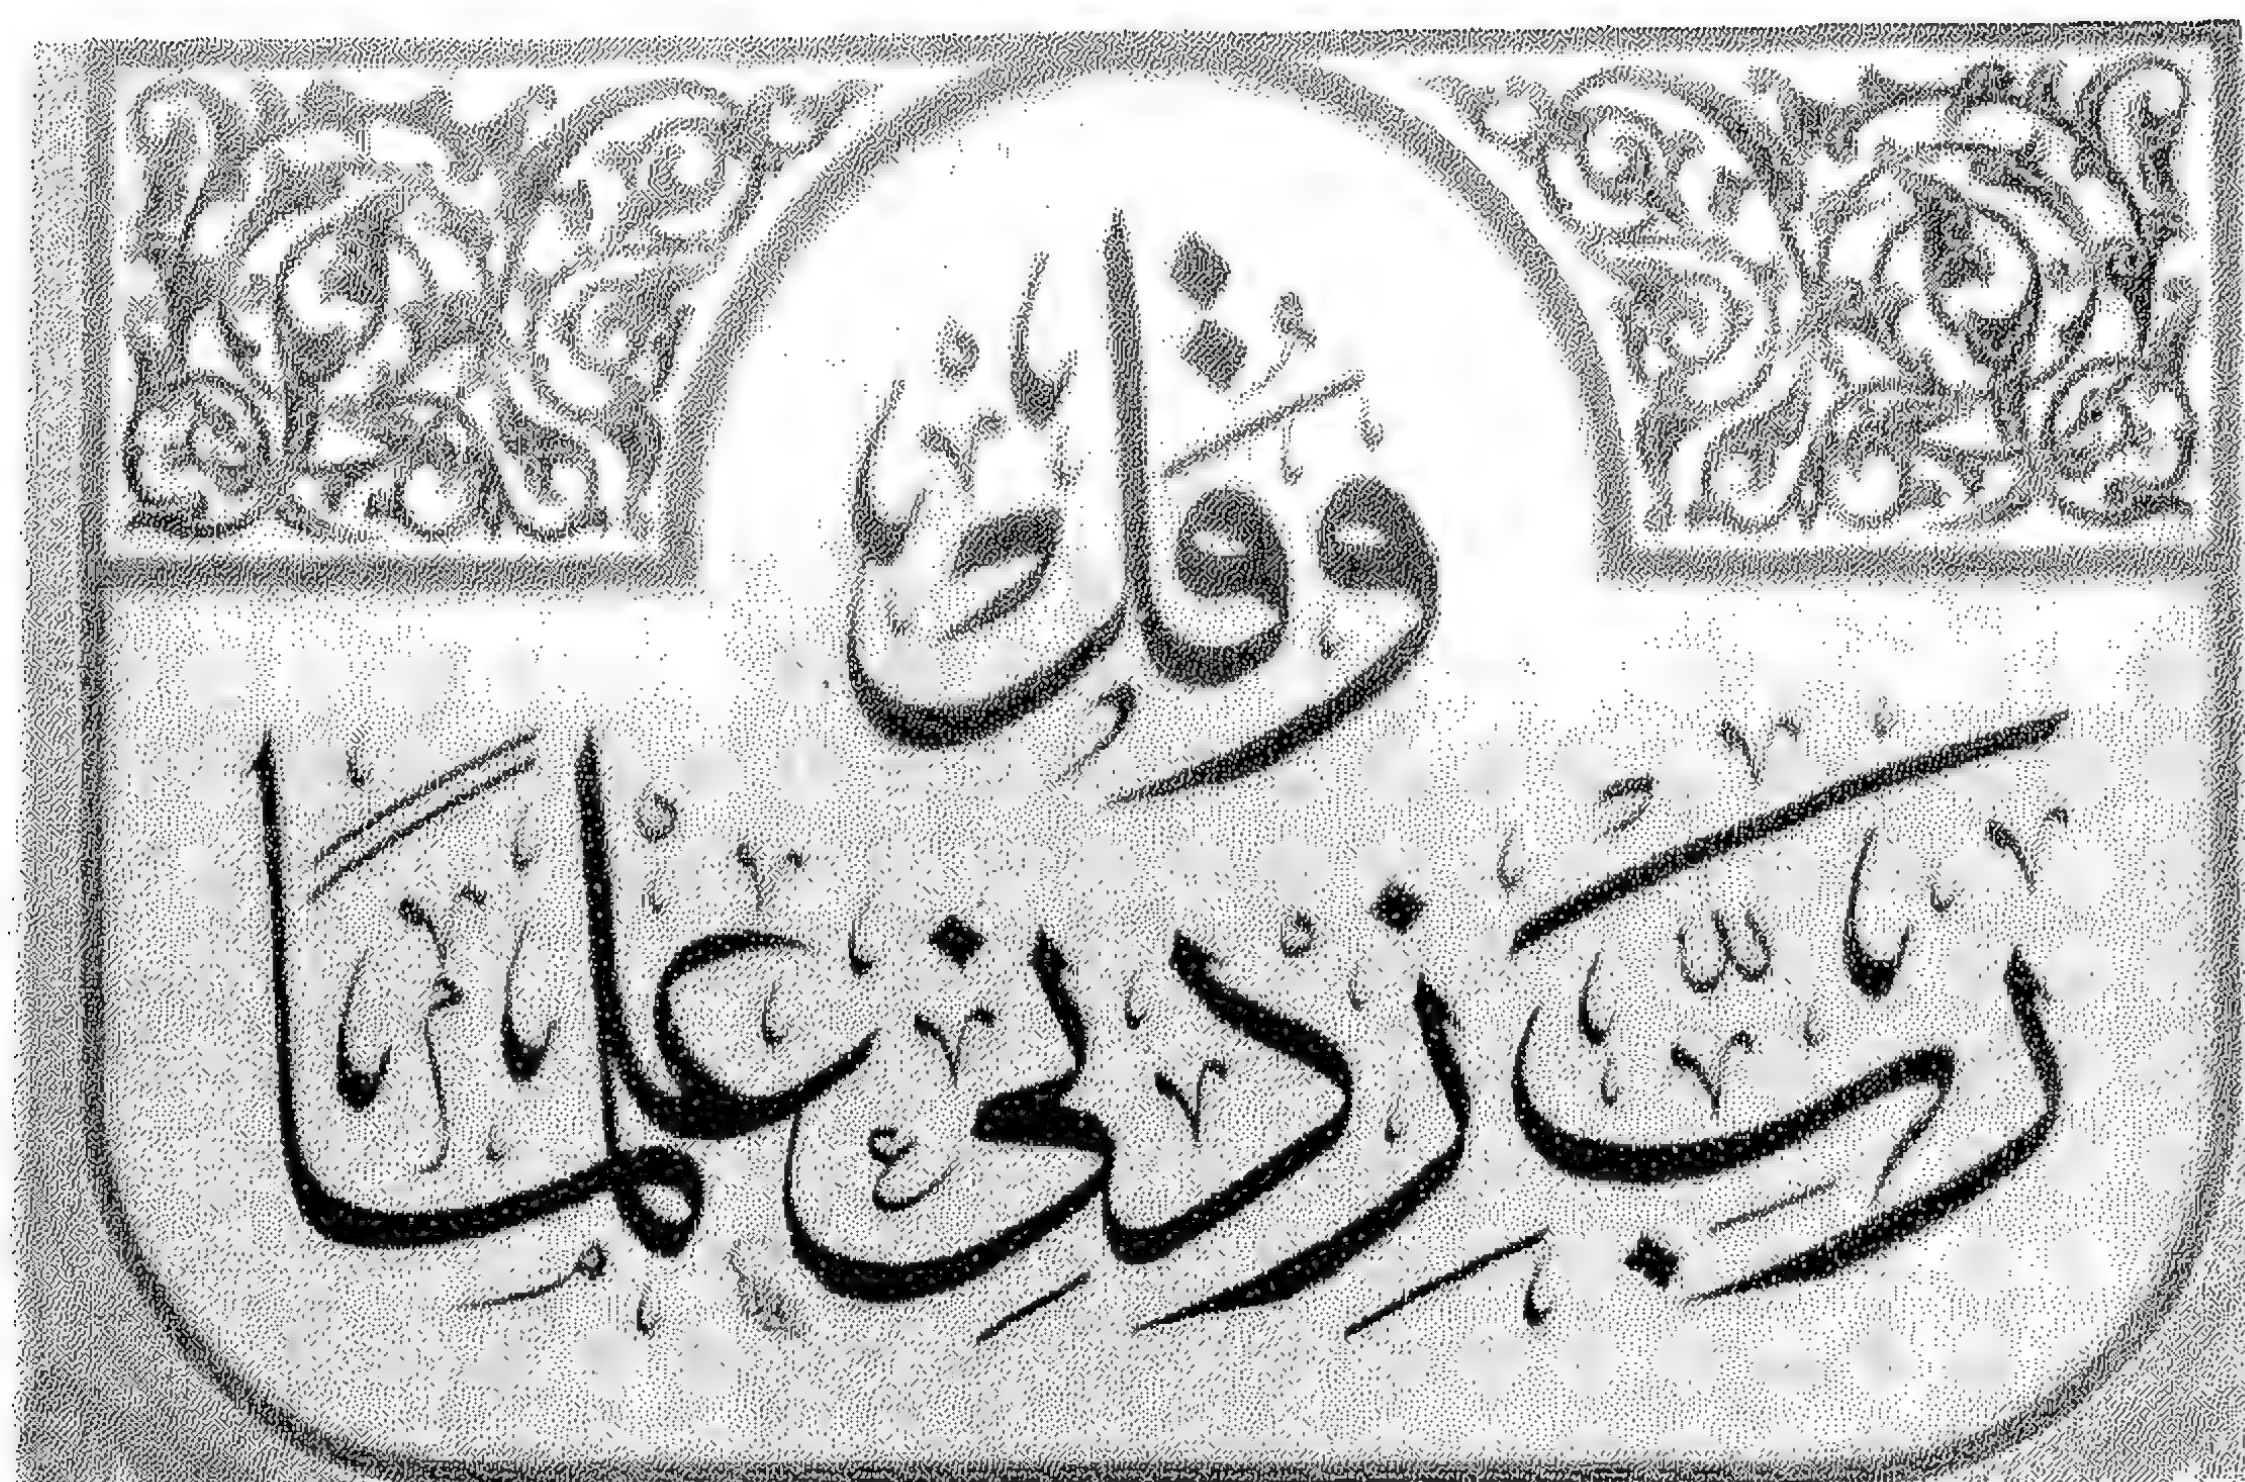 وَقُلْ
رَبِّ زِدْنِي عِلْمًا